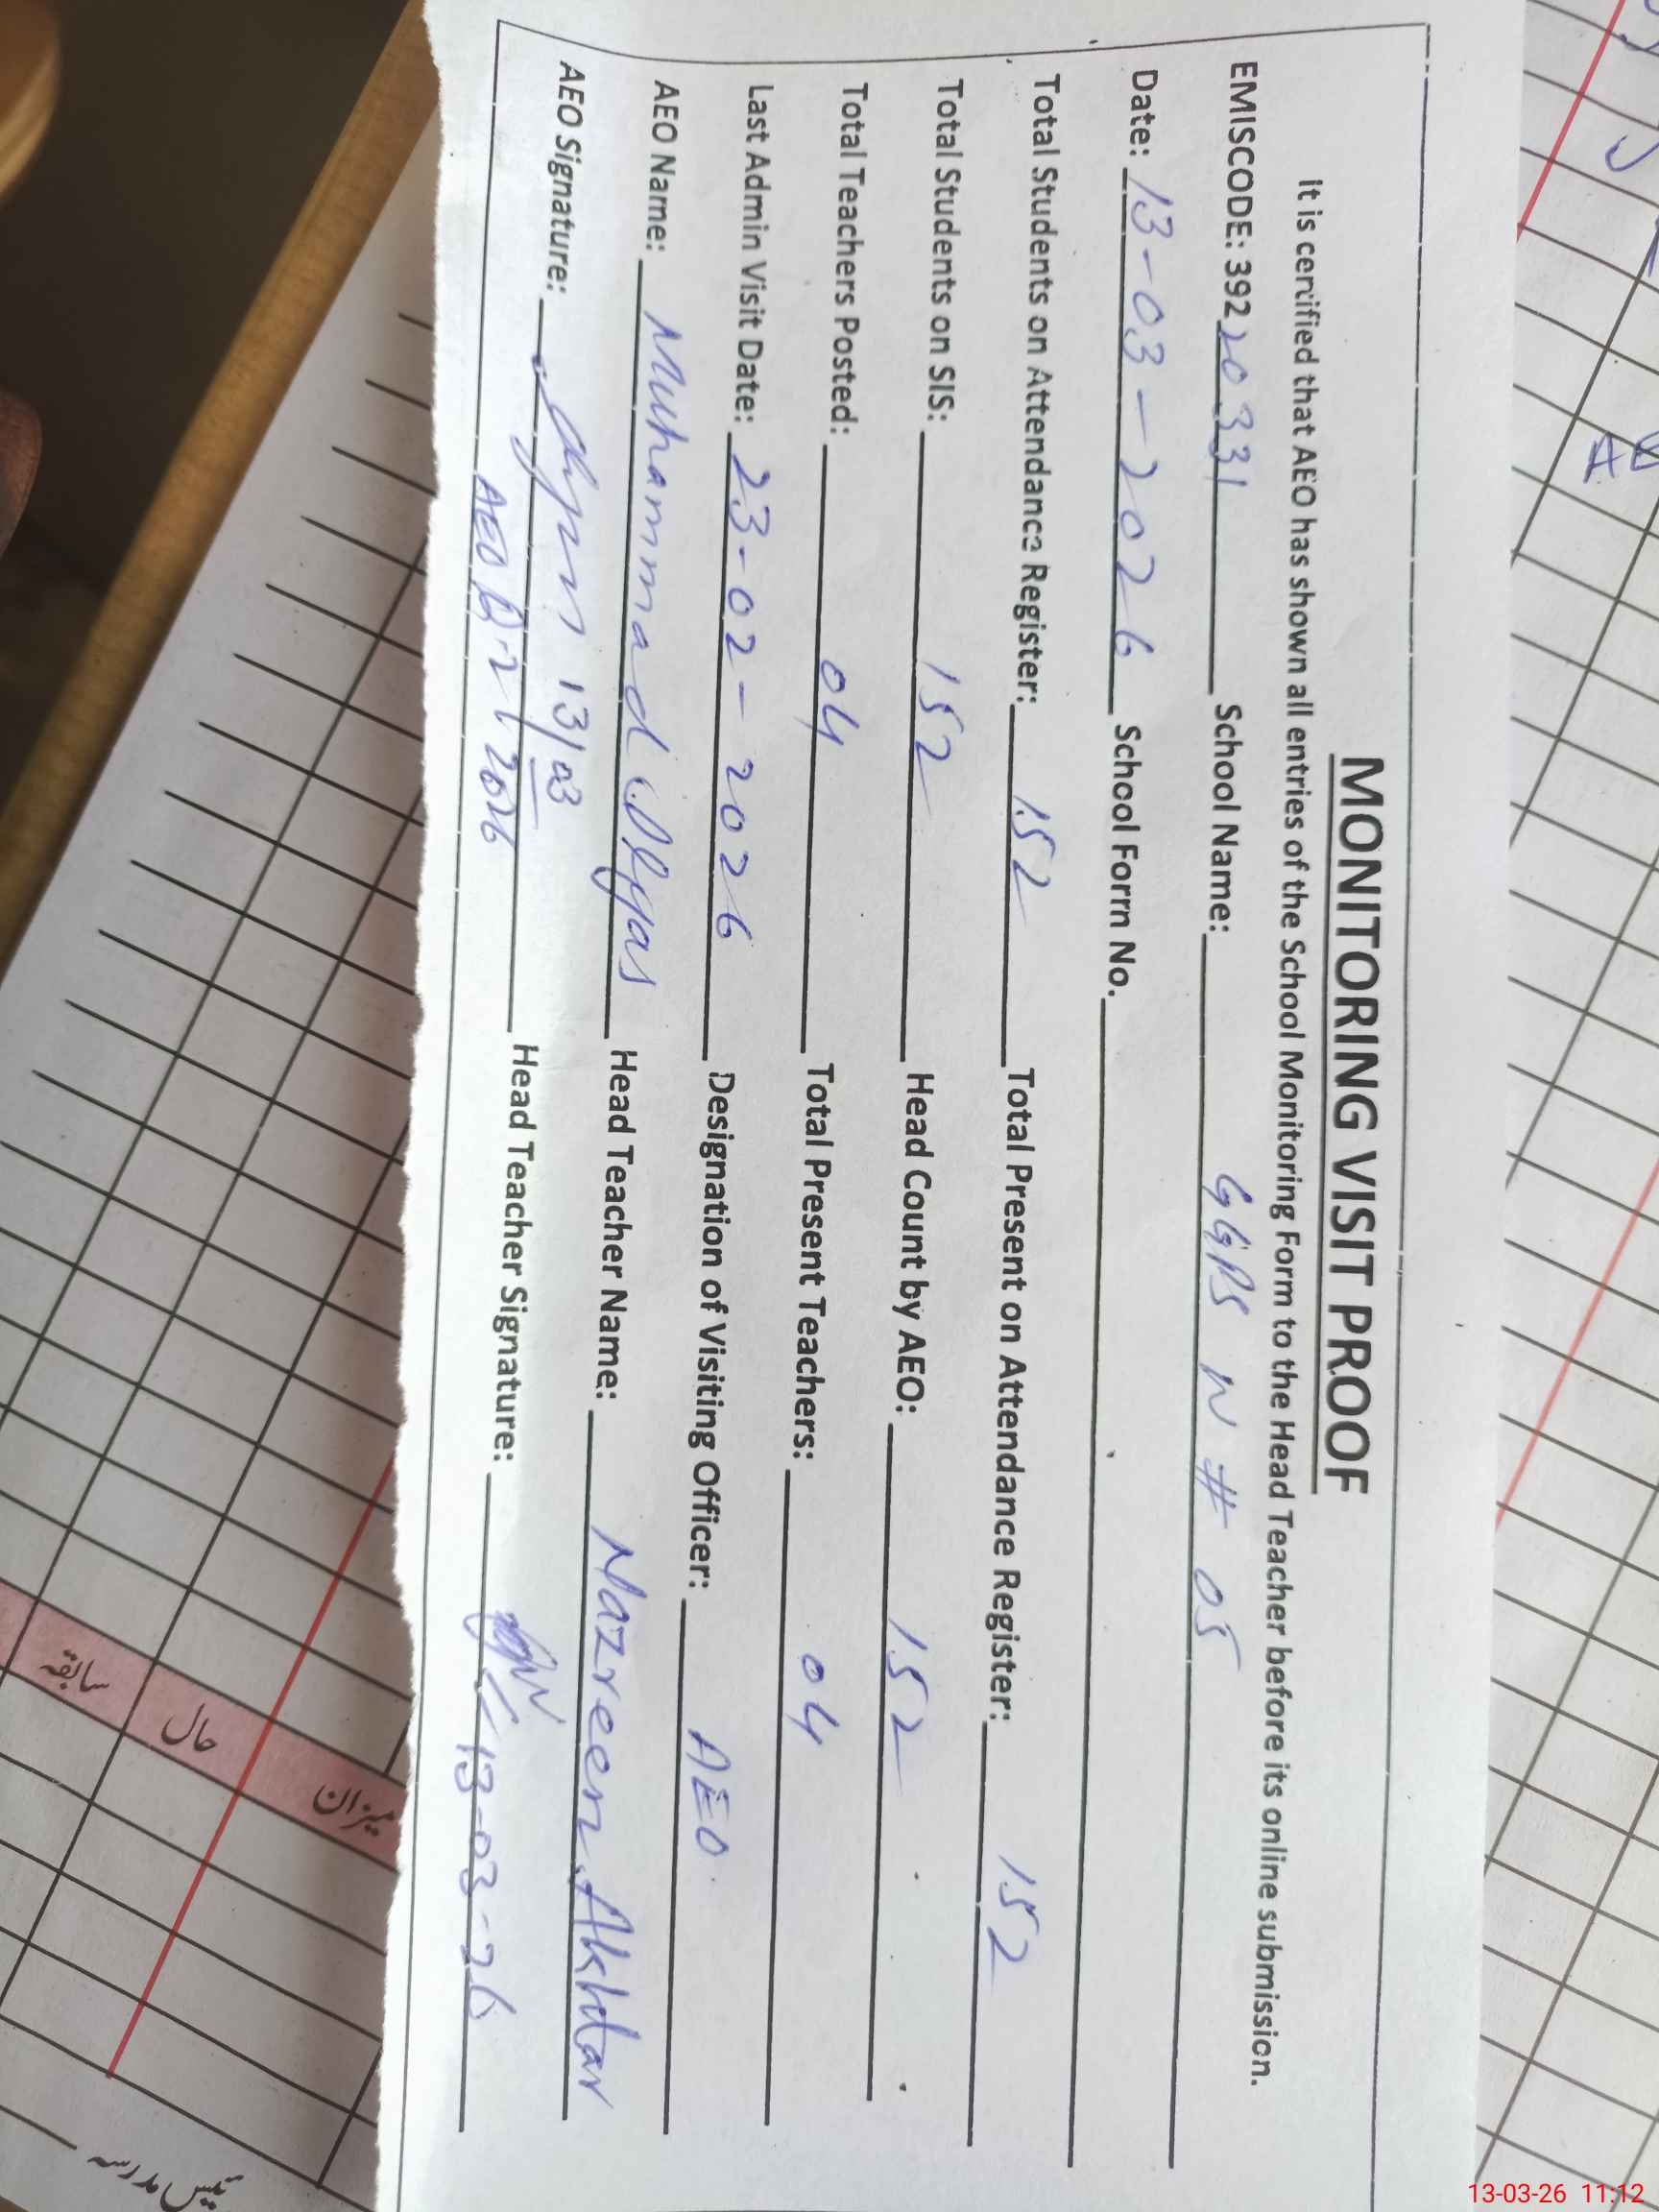 MONITORING VISIT PROOF
It is certified that AEO has shown all entries of the School Monitoring Form to the Head Teacher before its online submission.
EMISCODE: 39220331 School Name: GGPS N # 05
Date: 13-03-2026 School Form No.
Total Students on Attendance Register: 152 Total Present on Attendance Register: 152
Total Students on SIS: 152 Head Count by AEO: 152
Total Teachers Posted: 04 Total Present Teachers: 04
Last Admin Visit Date: 23-02-2026 Designation of Visiting Officer: AEO.
AEO Name: Muhammad Ilyas Head Teacher Name: Nazreen Akhtar
AEO Signature: 13/03 Head Teacher Signature: 13-03-26
AEO 2026
میزان
حال
سابقہ
مدرسہ
13-03-26 11:12